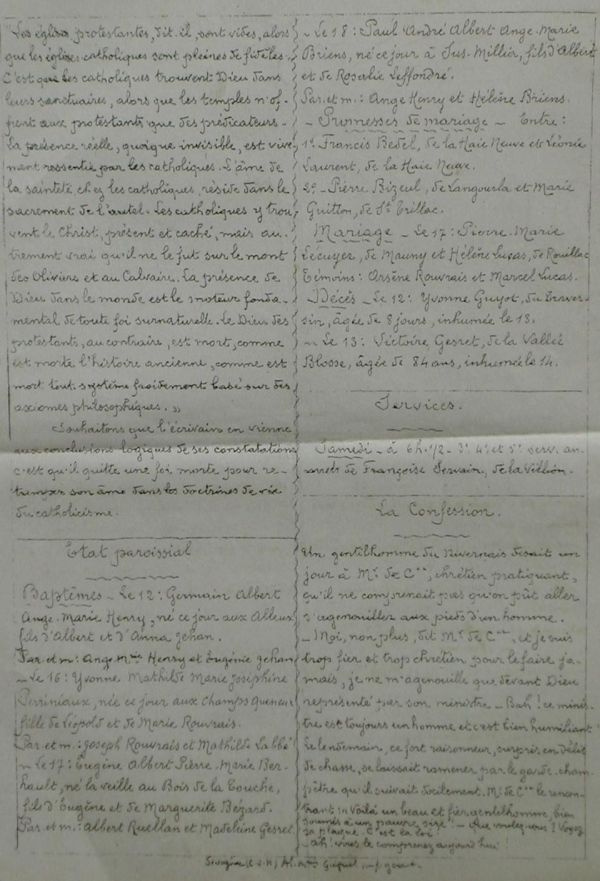 "Les églises protestantes, dit-il, sont vides, alors
que les églises catholiques sont pleines de fidèles.
C'est que les catholiques trouvent Dieu dans
leurs sanctuaires, alors que les temples n'of-
frent aux protestants que des prédicateurs.
La présence réelle, quoique invisible, est vive-
ment ressentie par les catholiques. L'âme de
la sainteté chez les catholiques, réside dans le
sacrement de l'autel. Les catholiques y trou-
vent le Christ, présent et caché, mais au-
trement vrai qu'il ne le fut sur le mont
des Oliviers et au Calvaire. La présence de
Dieu dans le monde est le moteur fonda-
mental de toute foi surnaturelle. Le Dieu des
protestants, au contraire, est mort, comme
est morte l'histoire ancienne, comme est
mort tout système froidement basé sur des
axiomes philosophiques. »
Souhaitons que l'écrivain en vienne
aux conclusions logiques de ses constatations
c'est qu'il quitte une foi morte pour re-
tremper son âme dans les doctrines de vie
du catholicisme.
Etat paroissial
Baptêmes - Le 12: Germain Albert
Ange-Marie Henry, né ce jour aux Alleux
fils d'Albert et d'Anna Jehan.
Par. et m: Ange Henry et Eugénie Jehan
- Le 16: Yvonne Mathilde Marie Josephine
Perriniaux, née ce jour aux Champs
fille de Léopold et de Marie Rouvrais.
Par. et m: Joseph Rouvrais et Mathilde Labbé
- Le 17: Eugène Albert Pierre Marie Ber-
hault, né la veille au Bois de la Touche,
fils d'Eugène et de Marguerite Bézard.
Par. et m: Albert Ruellan et Madeleine Gesret
- Le 18: Paul André Albert Ange-Marie
Briens, né ce jour à Sus-Millier, fils d'Albert
et de Roselie Leffondré.
Par. et m: Ange Henry et Hélène Briens.
- Promesses de mariage - Entre:
1º Francis Bedel, de la Haie Neuve et Léonie
Laurent, de la Haie Neuve.
2º - Pierre Bizeul, de Langourla et Marie
Guitton, de St
Mariage - Le 17: Pierre-Marie
Lécuyer, de Mauny et Hélène Lucas, de Rouillac
Témoins: Arsène Rouvrais et Marcel Lucas.
Décès - Le 12: Yvonne Guyot, du Traver-
sin, âgée de 8 jours, inhumée le 13.
- Le 13: Victoire Gesret, de la Vallée
Blosse, âgée de 84 ans, inhumée le 14.
Services.
Samedi - à 6h. 1/2 - 3º 4º et 5º serv. an-
nuels de Françoise Servain, de la Villion.
La Confession.
Un gentilhomme du Nivernais disait un
jour à Mr de C***, chrétien pratiquant,
qu'il ne comprenait pas qu'on pût aller
s'agenouiller aux pieds d'un homme.
- Moi, non plus, dit Mr de C***, et je suis
trop fier et trop chrétien pour le faire ja-
mais, je ne m'agenouille que devant Dieu
représenté par son ministre - Bah! ce minis-
tre est toujours un homme et c'est bien humiliant
Le lendemain, ce fort raisonneur, surpris en délit
de chasse, se laissait ramener par le garde-cham-
pêtre qu'il suivait docilement. Mr de C*** le rencon-
trant: "Voilà un beau et fier gentilhomme, bien
soumis à un pauvre - Que voulez-vous? Voyez
sa plaque. C'est la loi!
- Ah! vous le comprenez aujourd'hui!